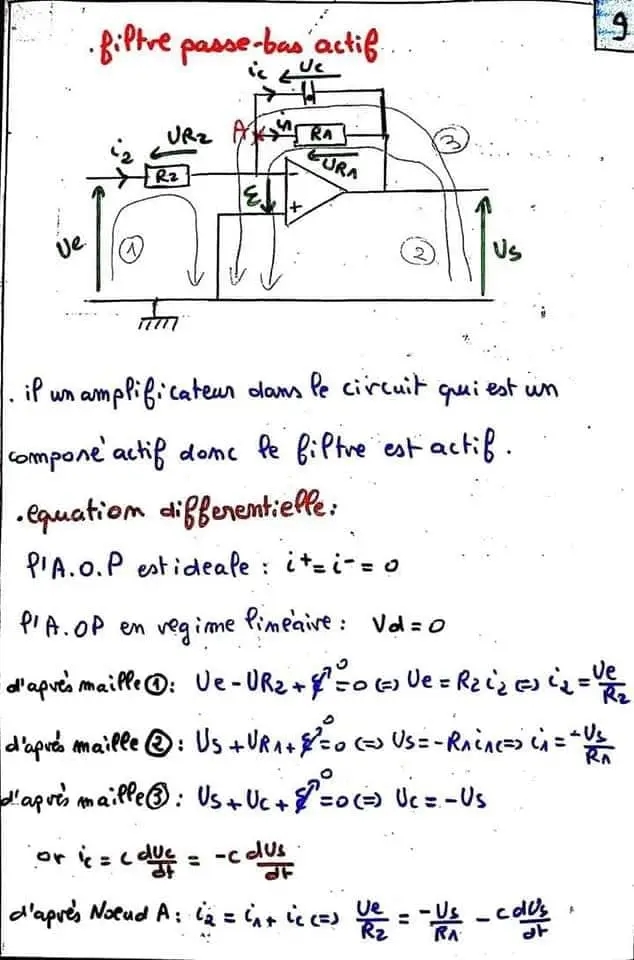 9
. filtre passe-bas actif
ic Uc
A i1 R1
UR1
i2 UR2
R2
ε
- +
Ue
Us
1 2 3
. il un amplificateur dans le circuit qui est un
composé actif donc le filtre est actif.
. equation differentielle:
l'A.O.P est ideale : i+ = i- = 0
l'A.OP en regime linéaire : Vd = 0
d'après maille ①: Ue - UR2 + ε⁰ = 0 (=) Ue = R2 i2 (=) i2 = Ue/R2
d'après maille ②: Us + UR1 + ε⁰ = 0 (=) Us = -R1 i1 (=) i1 = -Us/R1
d'après maille ③: Us + Uc + ε⁰ = 0 (=) Uc = -Us
or ic = C dUc/dt = -C dUs/dt
d'après Noeud A: i2 = i1 + ic (=) Ue/R2 = -Us/R1 - C dUs/dt